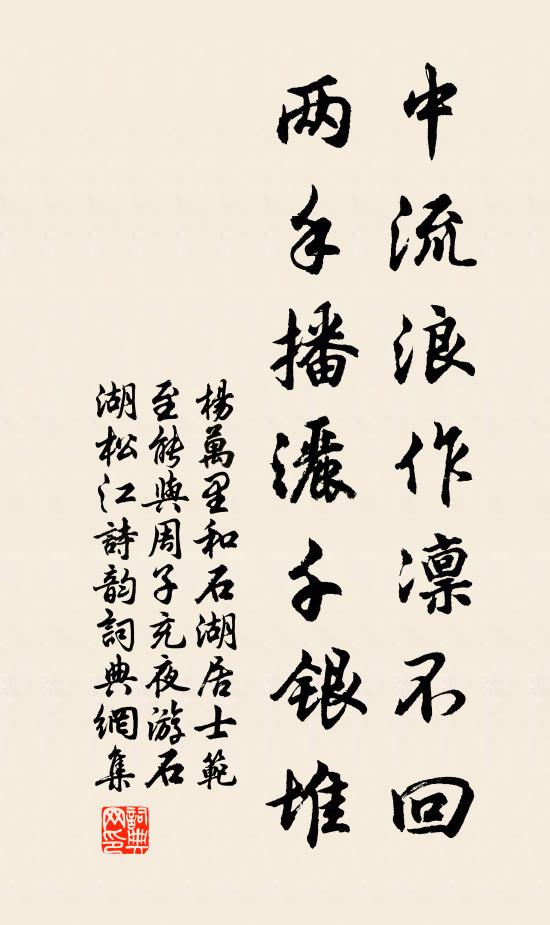 中流浪作凛不回
两手播灑千銀堆
楊萬里和石湖居士範
至能與周子充夜游石
湖松江詩韵詞典網集
詞典网印